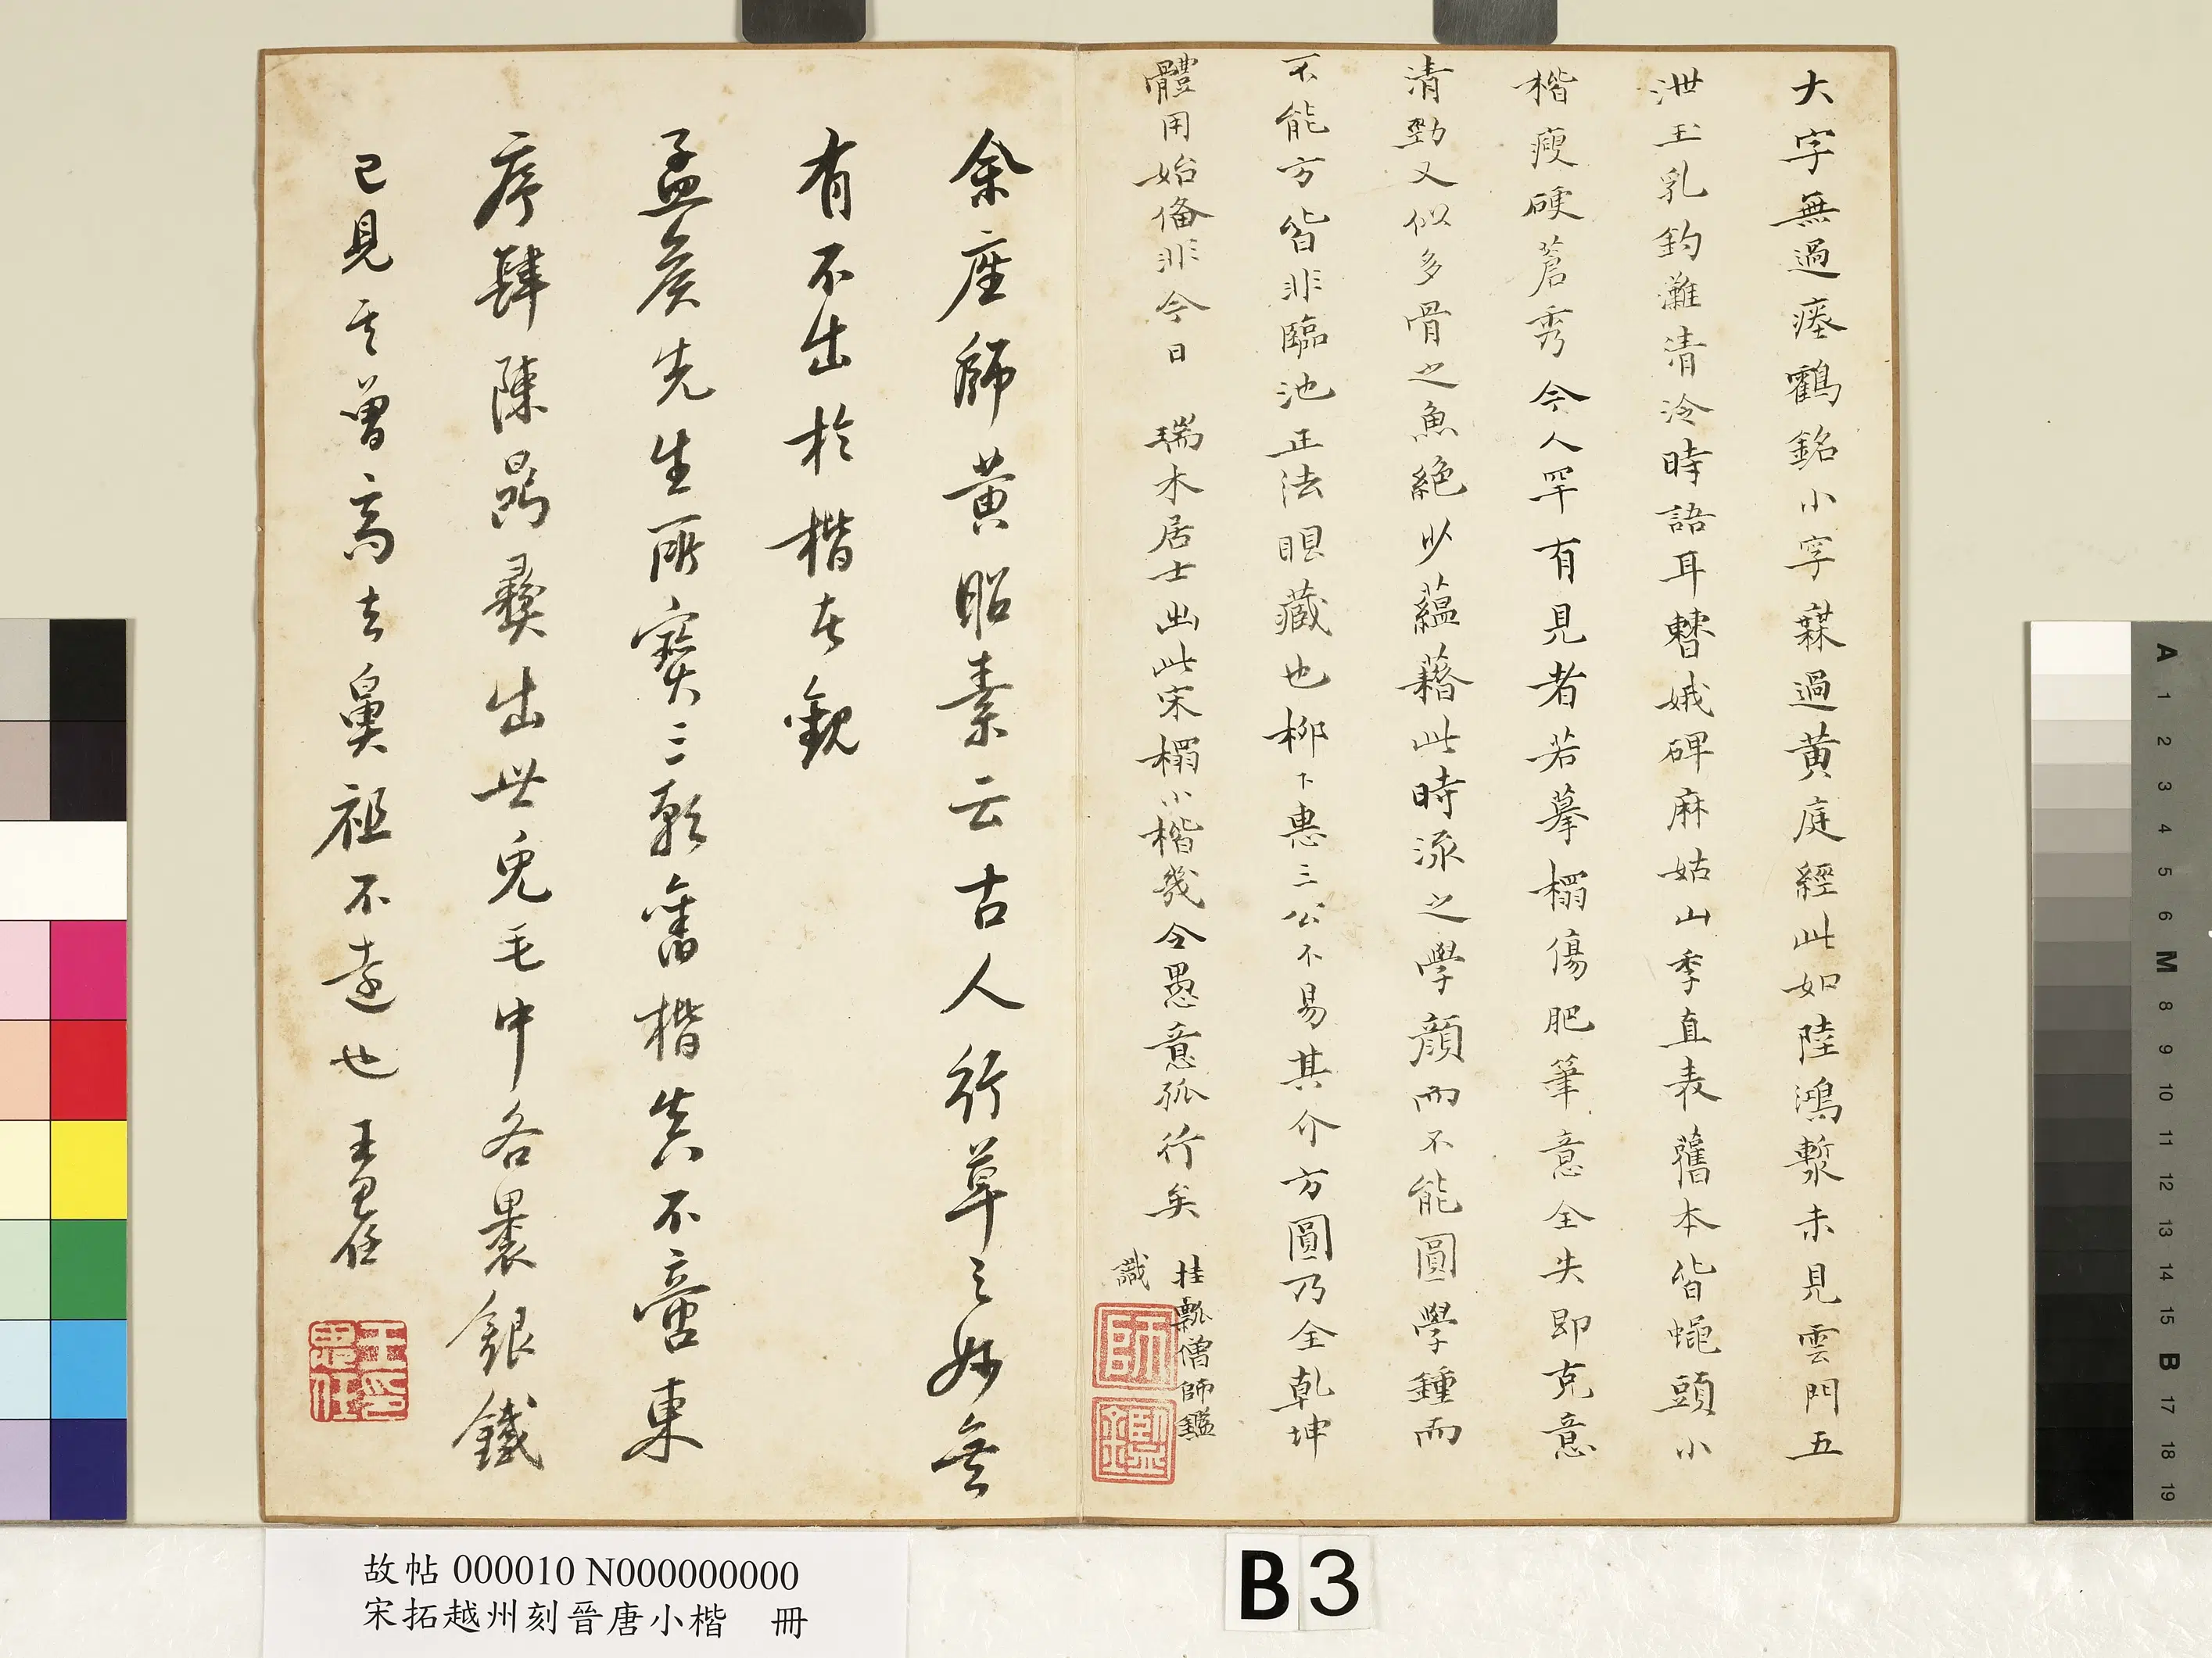 大字無過瘞鶴銘小字寐過黃庭經此如陸鴻漸未見雲門五
泄玉乳釣灘清泠時語耳轊娥碑麻姑山季直表舊本皆蠅頭小
楷瘦硬蒼秀今人罕有見者若摹榻傷肥筆意全失即克意
清勁又似多骨之魚絕少蘊藉此時流之學顏而不能圓學鍾而
不能方皆非臨池正法眼藏也柳下惠三公不易其介方圓乃全乾坤
體用始備非今日 瑞木居士出此宋榻小楷幾令愚意孤行矣 挂瓢僧師鑑
識
師
鑑
余座師黃昭素云古人行草之妙無
有不出於楷者觀
孟侯先生所寶二三軸舊楷真不啻東
序肆陳曷彝出世兔毛中各裹銀鐵
已見其曾高去鼻祖不遠也 王思任
王思任印
故帖 000010 N000000000
宋拓越州刻晉唐小楷 冊
B 3
A 1 2 3 4 5 6 M 8 9 10 11 12 13 14 15 B 17 18 19